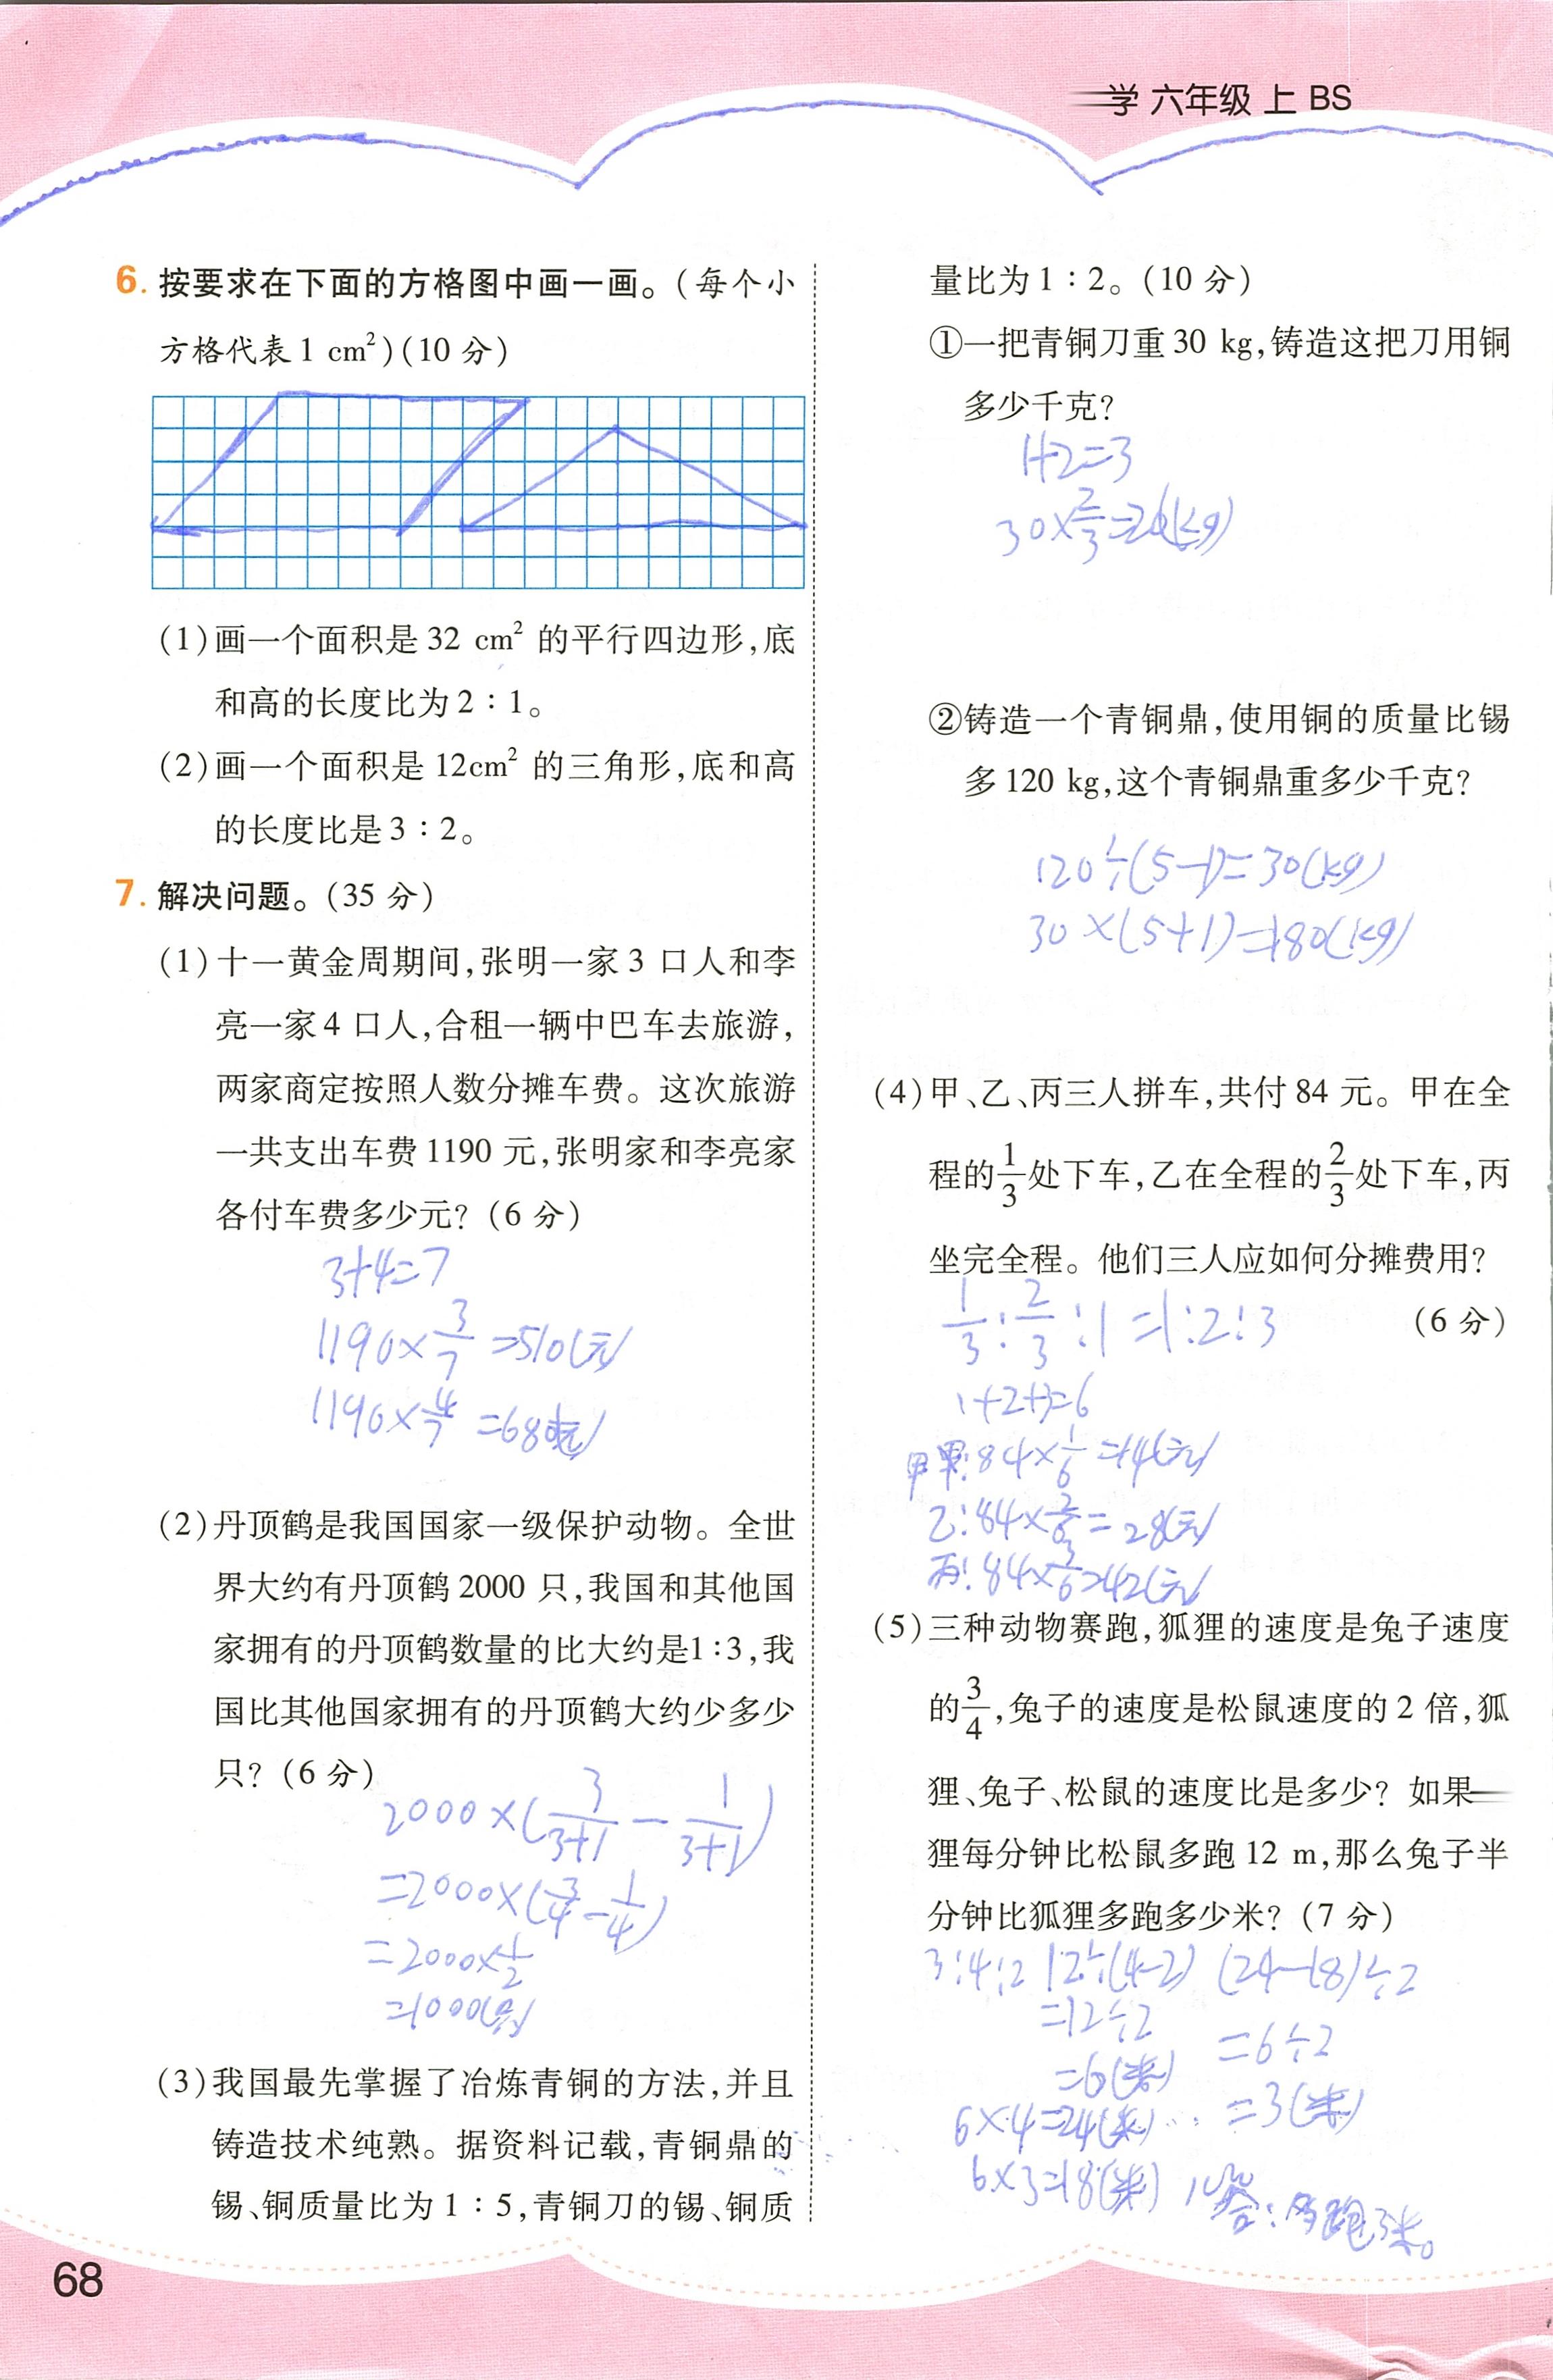 学 六年级 上 BS
6. 按要求在下面的方格图中画一画。(每个小
方格代表1 cm²)(10 分)
(1)画一个面积是 32 cm² 的平行四边形,底
和高的长度比为 2∶1。
(2)画一个面积是 12cm² 的三角形,底和高
的长度比是 3∶2。
7. 解决问题。(35 分)
(1)十一黄金周期间,张明一家 3 口人和李
亮一家 4 口人,合租一辆中巴车去旅游,
两家商定按照人数分摊车费。这次旅游
一共支出车费 1190 元,张明家和李亮家
各付车费多少元? (6 分)
3+4=7
1190×3/7=510(元)
1190×4/7=680(元)
(2)丹顶鹤是我国国家一级保护动物。全世
界大约有丹顶鹤 2000 只,我国和其他国
家拥有的丹顶鹤数量的比大约是1∶3,我
国比其他国家拥有的丹顶鹤大约少多少
只? (6 分)
2000×(3/3+1-1/3+1)
=2000×(3/4-1/4)
=2000×1/2
=1000(只)
(3)我国最先掌握了冶炼青铜的方法,并且
铸造技术纯熟。据资料记载,青铜鼎的
锡、铜质量比为 1∶5,青铜刀的锡、铜质
68
量比为 1∶2。(10 分)
①一把青铜刀重 30 kg,铸造这把刀用铜
多少千克?
1+2=3
30×2/3=20(kg)
②铸造一个青铜鼎,使用铜的质量比锡
多 120 kg,这个青铜鼎重多少千克?
120÷(5-1)=30(kg)
30×(5+1)=180(kg)
(4)甲、乙、丙三人拼车,共付 84 元。甲在全
程的1/3处下车,乙在全程的2/3处下车,丙
坐完全程。他们三人应如何分摊费用?
(6 分)
1/3:2/3:1=1:2:3
1+2+3=6
甲:84×1/6=14(元)
乙:84×2/6=28(元)
丙:84×3/6=42(元)
(5)三种动物赛跑,狐狸的速度是兔子速度
的3/4,兔子的速度是松鼠速度的 2 倍,狐
狸、兔子、松鼠的速度比是多少? 如果
狸每分钟比松鼠多跑 12 m,那么兔子半
分钟比狐狸多跑多少米? (7 分)
3:4:2 12÷(4-2) (24-18)÷2
=12÷2 =6÷2
=6(米) =3(米)
6×4=24(米)
6×3=18(米) 答:多跑3米。